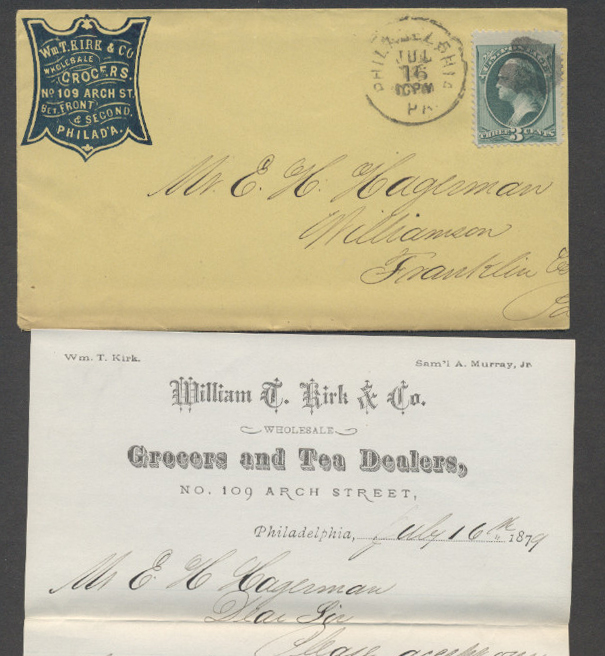 Wm T. KIRK & CO
WHOLESALE
GROCERS.
No 109 ARCH ST.
BET. FRONT
& SECOND,
PHILADA.
PHILADELPHIA
JUL
16
PA.
U.S. POSTAGE
THREE 3 CENTS
Mr. E. H. Hagerman
Williamson
Franklin Co
Pa
Wm. T. Kirk.
Sam'l A. Murray, Jr.
William T. Kirk & Co.
WHOLESALE
Grocers and Tea Dealers,
NO. 109 ARCH STREET,
Philadelphia, July 16th 1879
Mr E H Hagerman
Dear Sir
Please accept our